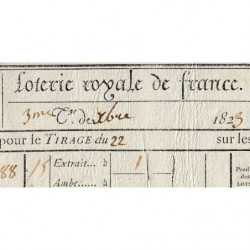 Loterie royale de france.
3me Tr. de Xbre 1823
pour le TIRAGE du 22 sur les
88 15 Extrait...à 1 Prod
Ambe......à des
LOTS